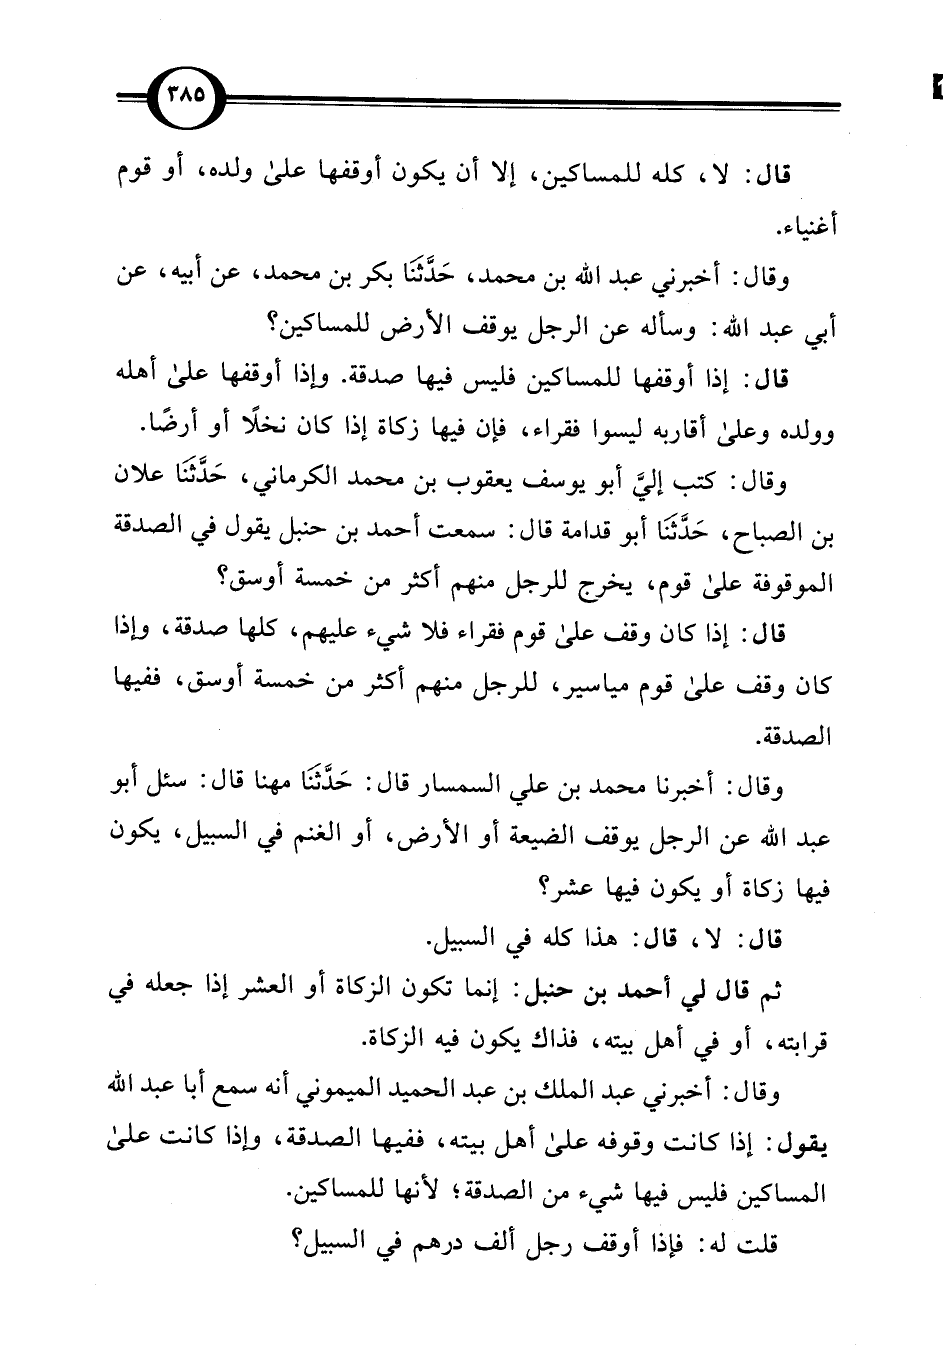 ٣٨٥
قال: لا، كله للمساكين، إلا أن يكون أوقفها علىٰ ولده، أو قوم
أغنياء.
وقال: أخبرني عبد الله بن محمد، حَدَّثَنَا بكر بن محمد، عن أبيه، عن
أبي عبد الله: وسأله عن الرجل يوقف الأرض للمساكين؟
قال: إذا أوقفها للمساكين فليس فيها صدقة. وإذا أوقفها علىٰ أهله
وولده وعلىٰ أقاربه ليسوا فقراء، فإن فيها زكاة إذا كان نخلًا أو أرضًا.
وقال: كتب إليَّ أبو يوسف يعقوب بن محمد الكرماني، حَدَّثَنَا علان
بن الصباح، حَدَّثَنَا أبو قدامة قال: سمعت أحمد بن حنبل يقول في الصدقة
الموقوفة علىٰ قوم، يخرج للرجل منهم أكثر من خمسة أوسق؟
قال: إذا كان وقف علىٰ قوم فقراء فلا شيء عليهم، كلها صدقة، وإذا
كان وقف علىٰ قوم مياسير، للرجل منهم أكثر من خمسة أوسق، ففيها
الصدقة.
وقال: أخبرنا محمد بن علي السمسار قال: حَدَّثَنَا مهنا قال: سئل أبو
عبد الله عن الرجل يوقف الضيعة أو الأرض، أو الغنم في السبيل، يكون
فيها زكاة أو يكون فيها عشر؟
قال: لا، قال: هذا كله في السبيل.
ثم قال لي أحمد بن حنبل: إنما تكون الزكاة أو العشر إذا جعله في
قرابته، أو في أهل بيته، فذاك يكون فيه الزكاة.
وقال: أخبرني عبد الملك بن عبد الحميد الميموني أنه سمع أبا عبد الله
يقول: إذا كانت وقوفه علىٰ أهل بيته، ففيها الصدقة، وإذا كانت علىٰ
المساكين فليس فيها شيء من الصدقة؛ لأنها للمساكين.
قلت له: فإذا أوقف رجل ألف درهم في السبيل؟